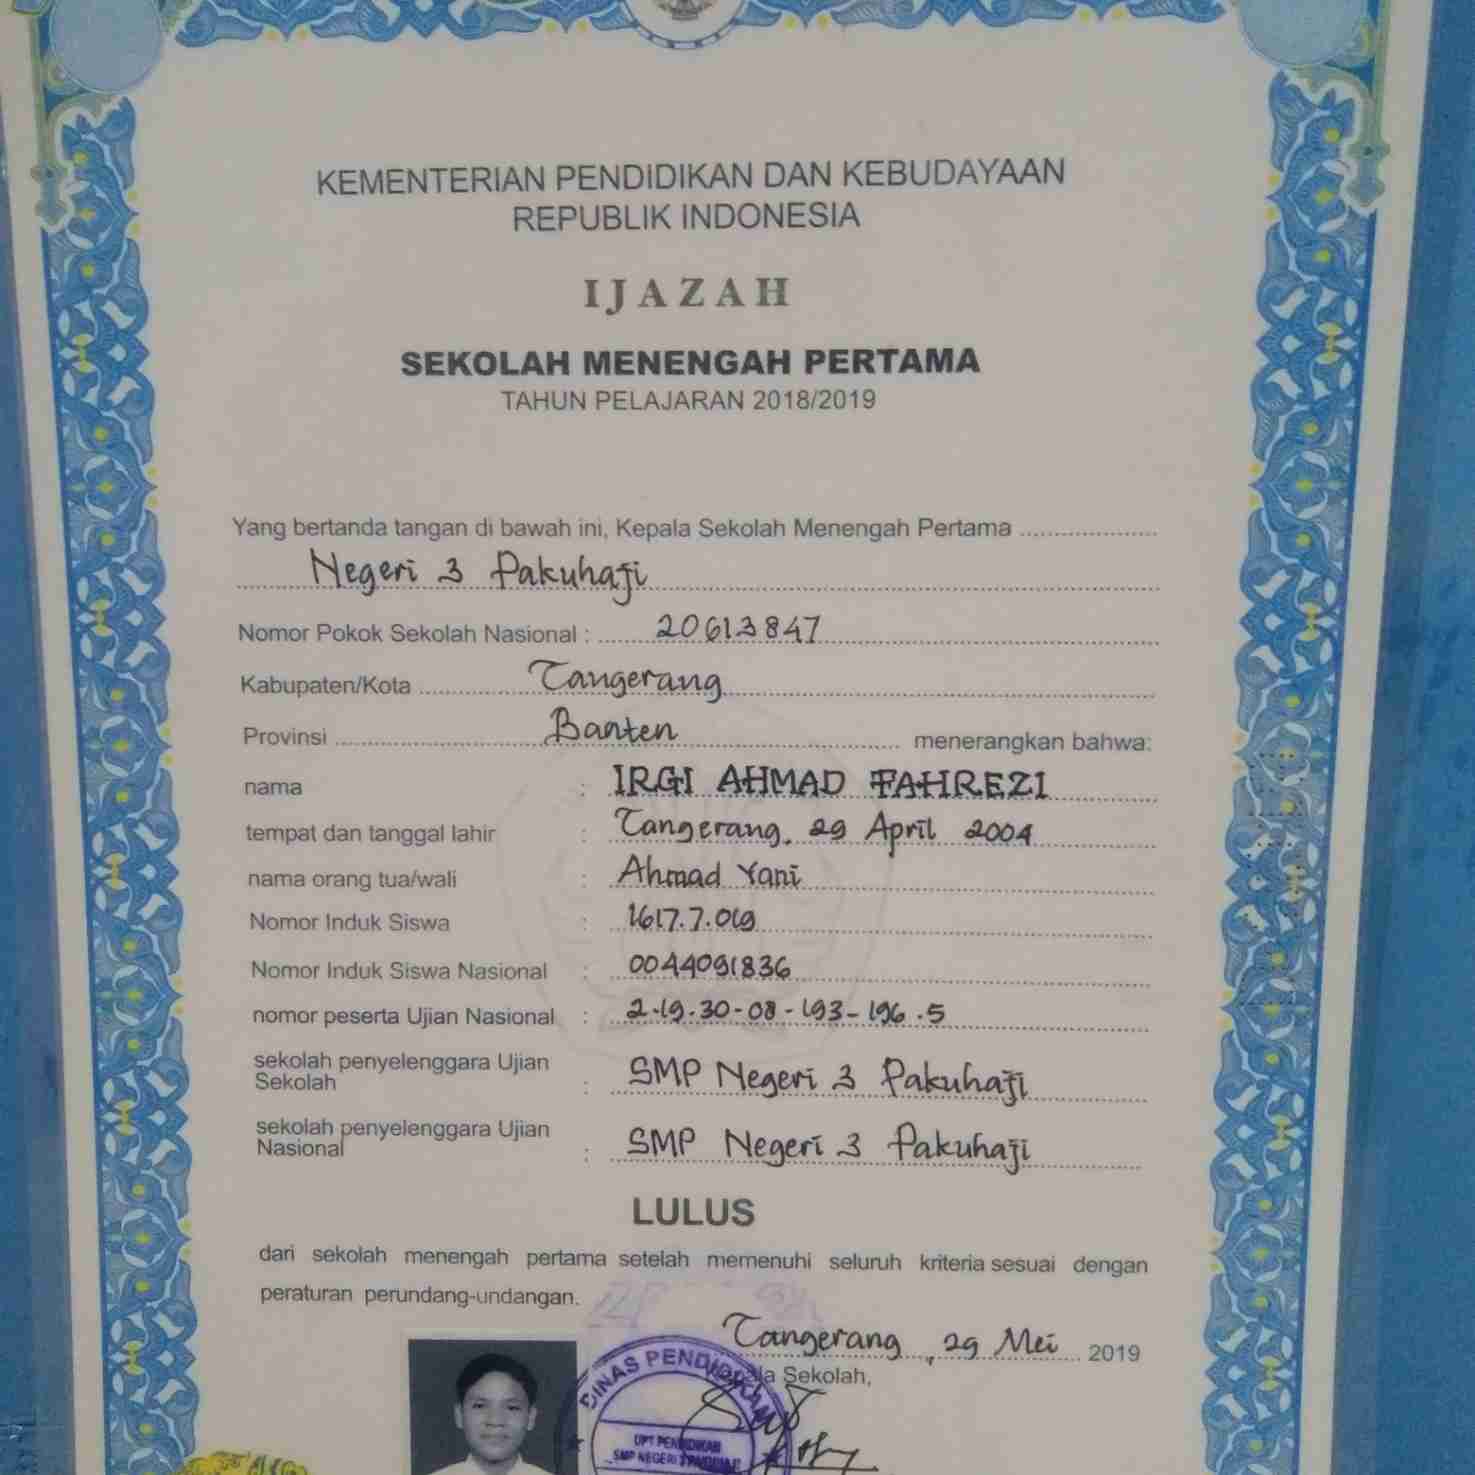 KEMENTERIAN PENDIDIKAN DAN KEBUDAYAAN
REPUBLIK INDONESIA
IJAZAH
SEKOLAH MENENGAH PERTAMA
TAHUN PELAJARAN 2018/2019
Yang bertanda tangan di bawah ini, Kepala Sekolah Menengah Pertama
Negeri 3 Pakuhaji
Nomor Pokok Sekolah Nasional : 20613847
Kabupaten/Kota Tangerang
Provinsi Banten menerangkan bahwa:
nama : IRGI AHMAD FAHREZI
tempat dan tanggal lahir : Tangerang, 29 April 2004
nama orang tua/wali : Ahmad Yani
Nomor Induk Siswa : 1617.7.019
Nomor Induk Siswa Nasional : 0044091836
nomor peserta Ujian Nasional : 2-19-30-08-193-196-5
sekolah penyelenggara Ujian
Sekolah : SMP Negeri 3 Pakuhaji
sekolah penyelenggara Ujian
Nasional : SMP Negeri 3 Pakuhaji
LULUS
dari sekolah menengah pertama setelah memenuhi seluruh kriteria sesuai dengan
peraturan perundang-undangan.
Tangerang, 29 Mei 2019
Kepala Sekolah,
DINAS PENDIDIKAN
UPT PENDIDIKAN
SMP NEGERI 3 PAKUHAJI